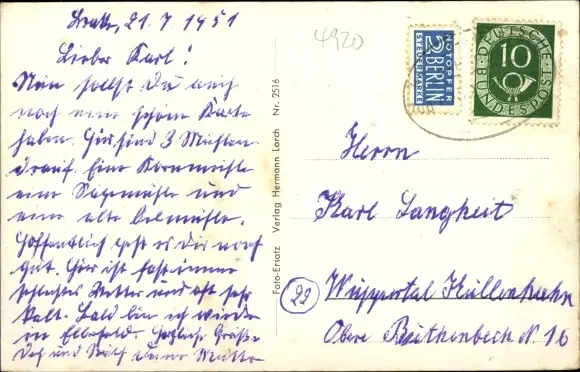 21.7.1951
Lieber Karl!
Nun sollst Du auch
noch eine schöne Karte
haben. Hier sind 3 Mühlen
drauf. Eine Kornmühle
eine Sägemühle und
eine alte Oelmühle.
Hoffentlich geht es dir noch
gut. Hier ist fast immer
schlechtes Wetter und oft sehr
kalt. Bald bin ich wieder
in Elberfeld. Herzliche Grüße
Dich und Deine Mutter
4920
NOTOPFER
2 BERLIN
STEUERMARKE
DEUTSCHE
10
BUNDESPOST
Foto-Ersatz Verlag Hermann Lorch Nr. 2516
Herrn
Karl Langheit
(22) Wuppertal Küllenhahn
Obere Beuthenbeck N. 16